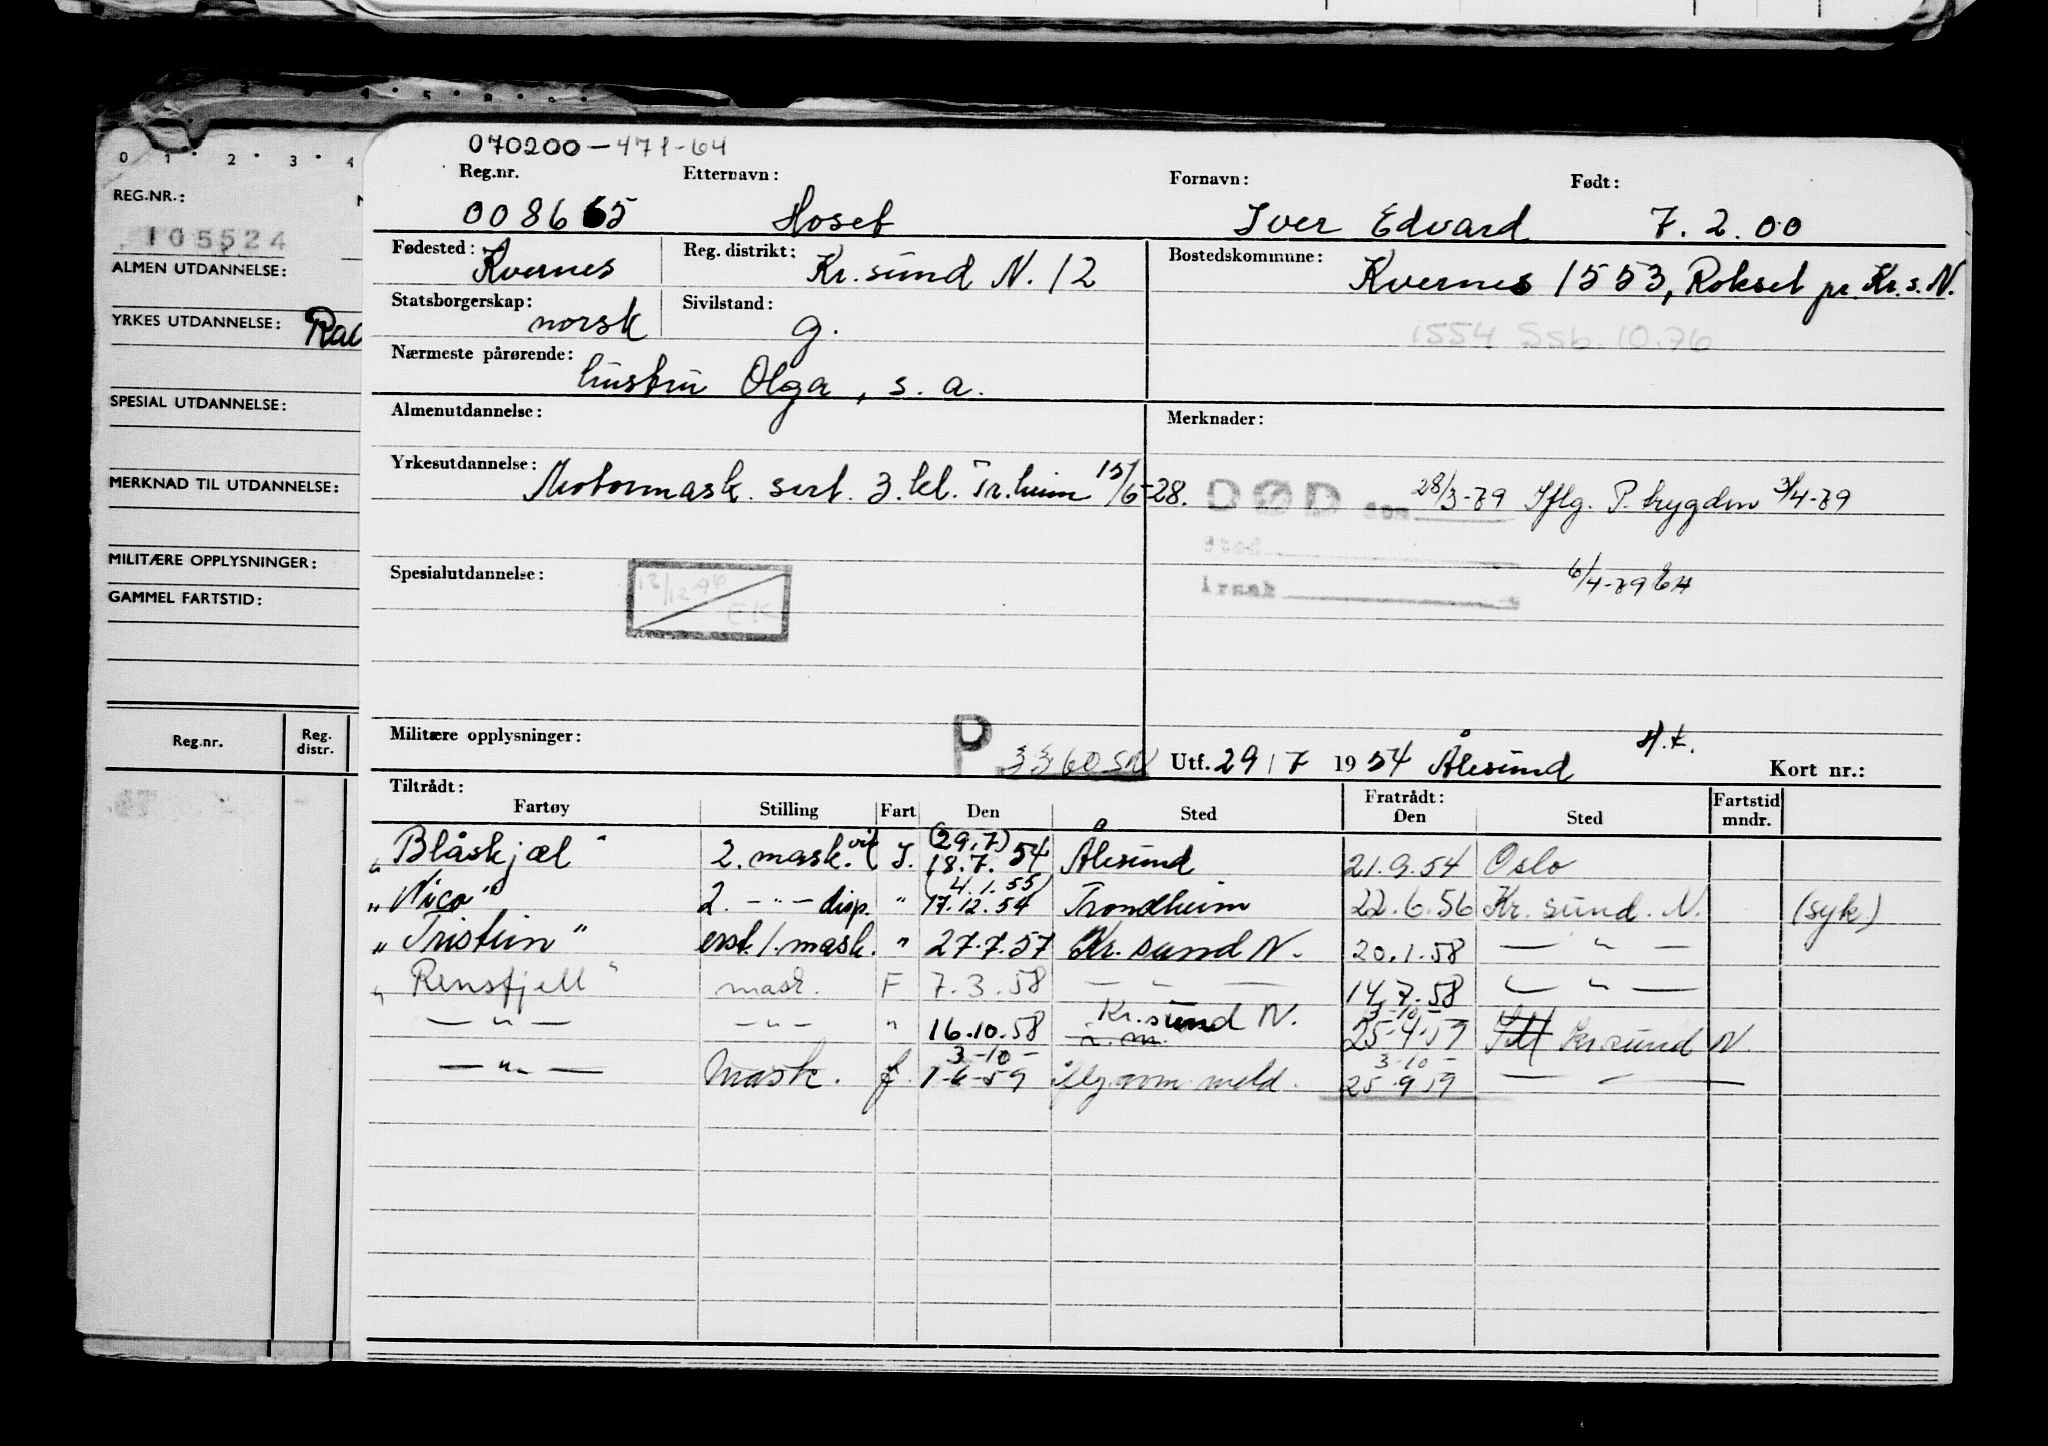 0 1 2 3 4 5
REG.NR.:
105524
ALMEN UTDANNELSE:
YRKES UTDANNELSE:
SPESIAL UTDANNELSE:
MERKNAD TIL UTDANNELSE:
MILITÆRE OPPLYSNINGER:
GAMMEL FARTSTID:
Reg.nr. Reg. distr.
070200-471-64
Reg.nr. Etternavn: Fornavn: Født:
008665 Hoset Iver Edvard 7.2.00
Fødested: Kvernes Reg. distrikt: Kr.sund N. 12 Bostedskommune: Kvernes 1553, Rokset pr. Kr.s.N.
Statsborgerskap: norsk Sivilstand: g. 1554 Ssb. 10.76
Nærmeste pårørende: hustru Olga, s.a.
Almenutdannelse: Merknader:
Yrkesutdannelse: Motormask. sert. 3.kl. Tr.heim 15/6-28. DØD den 28/3-79 Iflg. P. trygden 3/4-79
Sted
Spesialutdannelse: 12/12-94 EK Årsak 6/4-79 EH
Militære opplysninger: P 3360 SN Utf. 29/7 1954 Ålesund H.k. Kort nr.:
Tiltrådt: Fratrådt: Fartstid
Fartøy Stilling Fart Den Sted Den Sted mndr.
"Blåskjæl" 2. mask. vik I. (29.7) 18.7.54 Ålesund 21.9.54 Oslo
"Nico" 2. -"- disp. " (4.1.55) 17.12.54 Trondheim 22.6.56 Kr. sund. N. (syk)
"Tristein" erst. 1. mask. " 27.7.57 Kr. sund N. 20.1.58 — " —
"Rensfjell" mask. F 7.3.58 — " — 14.7.58 — " —
— " — -"- " 16.10.58 Kr.sund N. 3-10- 25.4.59 Kr.sund N.
— " — Mask. f. 3-10- 1-6-59 iflg. avm. meld. 3-10- 25.9.59 — " —